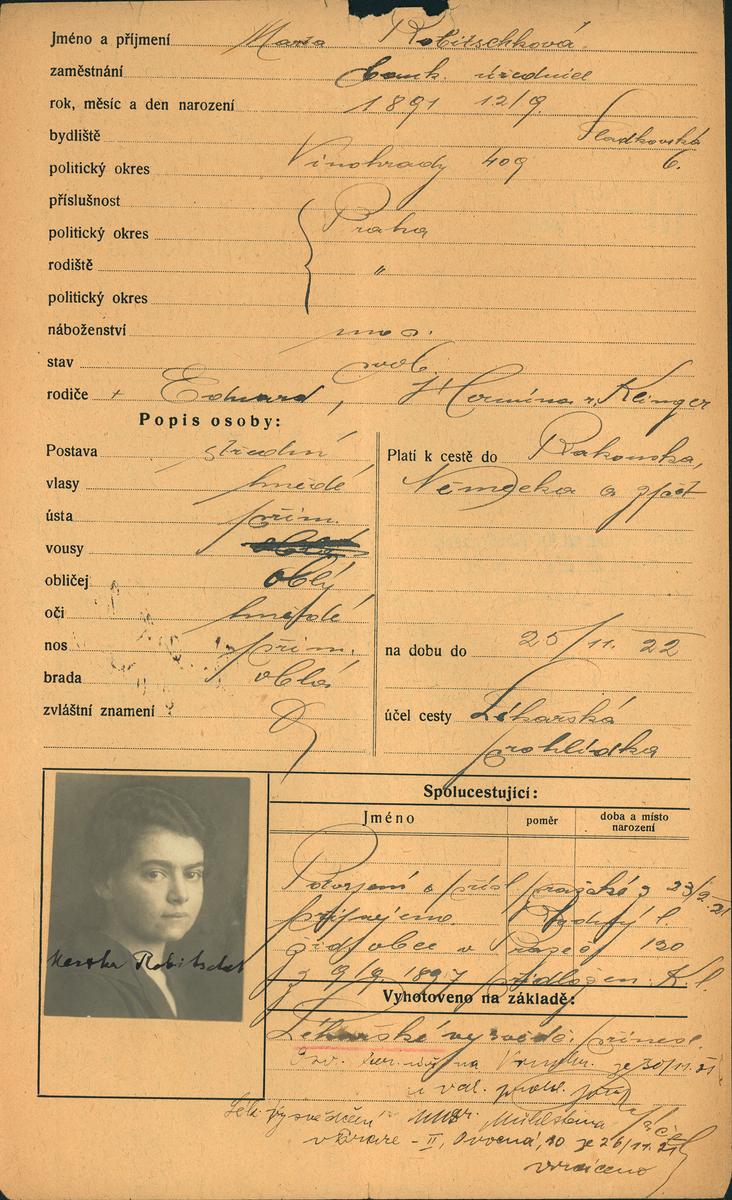 Jméno a příjmení Marta Robitschková
zaměstnání bank. úřednice
rok, měsíc a den narození 1891 12/9
bydliště Sladkovská
politický okres Vinohrady 409 6.
příslušnost
politický okres Praha
rodiště "
politický okres
náboženství mos.
stav svob.
rodiče + Eduard, Hermína r. Klinger
Popis osoby:
Postava střední
vlasy hnědé
ústa přim.
vousy
obličej oblý
oči hnědé
nos přim.
brada oblá
zvláštní znamení ?
Platí k cestě do Rakouska,
Německa a zpět
na dobu do 25/11. 22
účel cesty Lékařská
prohlídka
Spolucestující:
Jméno poměr doba a místo narození
Potvrzení o přísl. pražské z 23/2.21
připojeno. Rodný l.
žid. obce v Praze 130
z 9/9. 1897 předložen. K.
Marta Robitschek
Vyhotoveno na základě:
Lékařské vysvědč. přines.
30/11.21
Lék. vysvědčení MUDr. Mühlsteina
v Praze - II, Ovocná, 10 ze 26/11.21
vráceno